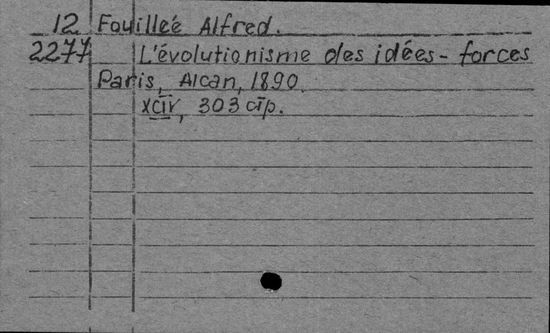 12 Fouilleé Alfred.
2277 L'évolutionisme des idées-forces
Paris, Alcan, 1890.
XCIV, 303 стр.